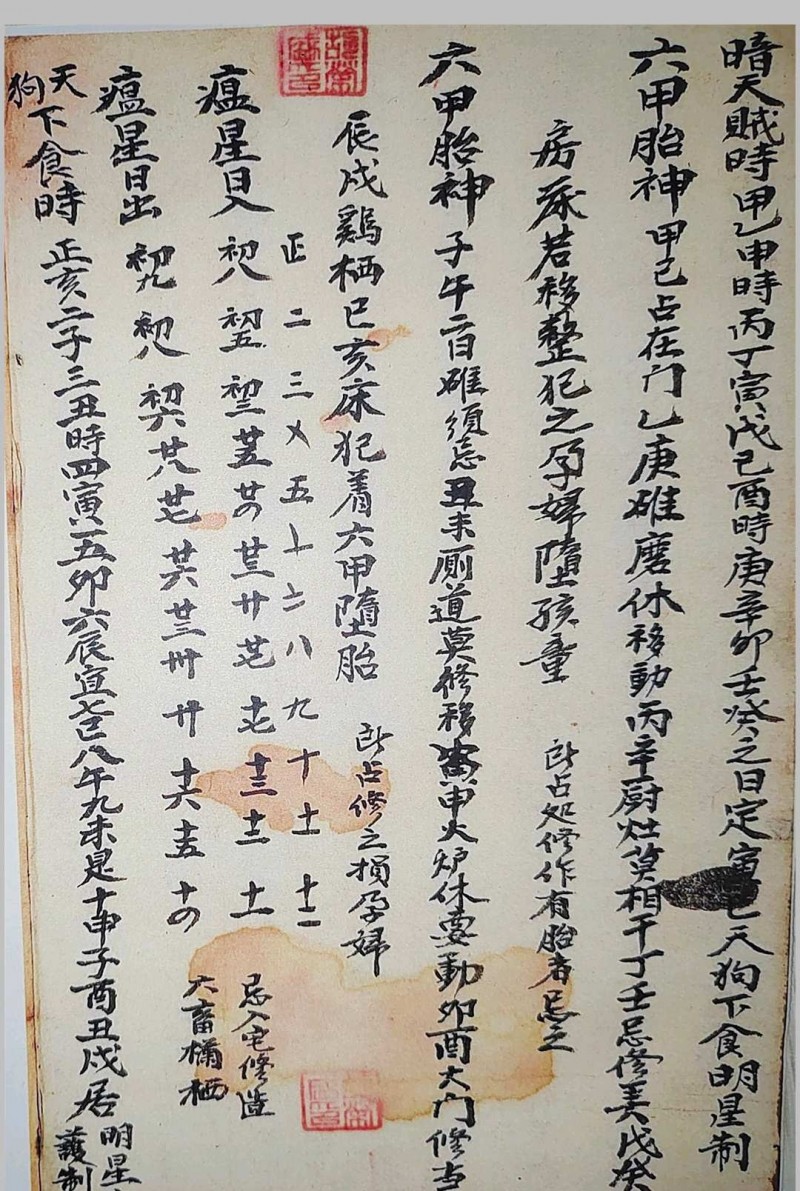 暗天贼時甲乙申時丙丁寅戊己酉時庚辛卯壬癸之日定寅巳天狗下食明星制
六甲胎神甲己占在门乙庚碓磨休移動丙辛厨灶莫相干丁壬忌修美戊癸
房床若移整犯之孕婦墮孩童 此占处修作有胎者忌之
六甲胎神子午二日碓須忌丑未厠道莫修移寅申火炉休要動卯酉大门修当
辰戌鷄栖巳亥床犯着六甲墮胎 此占修之損孕婦
正二三〤五〦六八九十十一十二
瘟星日入初八初五初三廿五廿〤廿三廿廿七十七十三十二十一 忌入宅修造
瘟星日出初九初八初六廿八廿七廿六廿三卅廿十六十五十〤 六畜栖
天狗下食時正亥二子三丑時四寅五卯六辰宜七巳八午九未是十申子酉丑戌居 明星護制